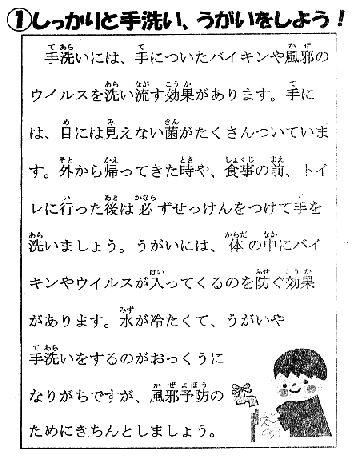 ①しっかりと手洗い、うがいをしよう！
手洗いには、手についたバイキンや風邪の
ウイルスを洗い流す効果があります。手に
は、目には見えない菌がたくさんついていま
す。外から帰ってきた時や、食事の前、トイ
レに行った後は必ずせっけんをつけて手を
洗いましょう。うがいには、体の中にバイ
キンやウイルスが入ってくるのを防ぐ効果
があります。水が冷たくて、うがいや
手洗いをするのがおっくうに
なりがちですが、風邪予防の
ためにきちんとしましょう。